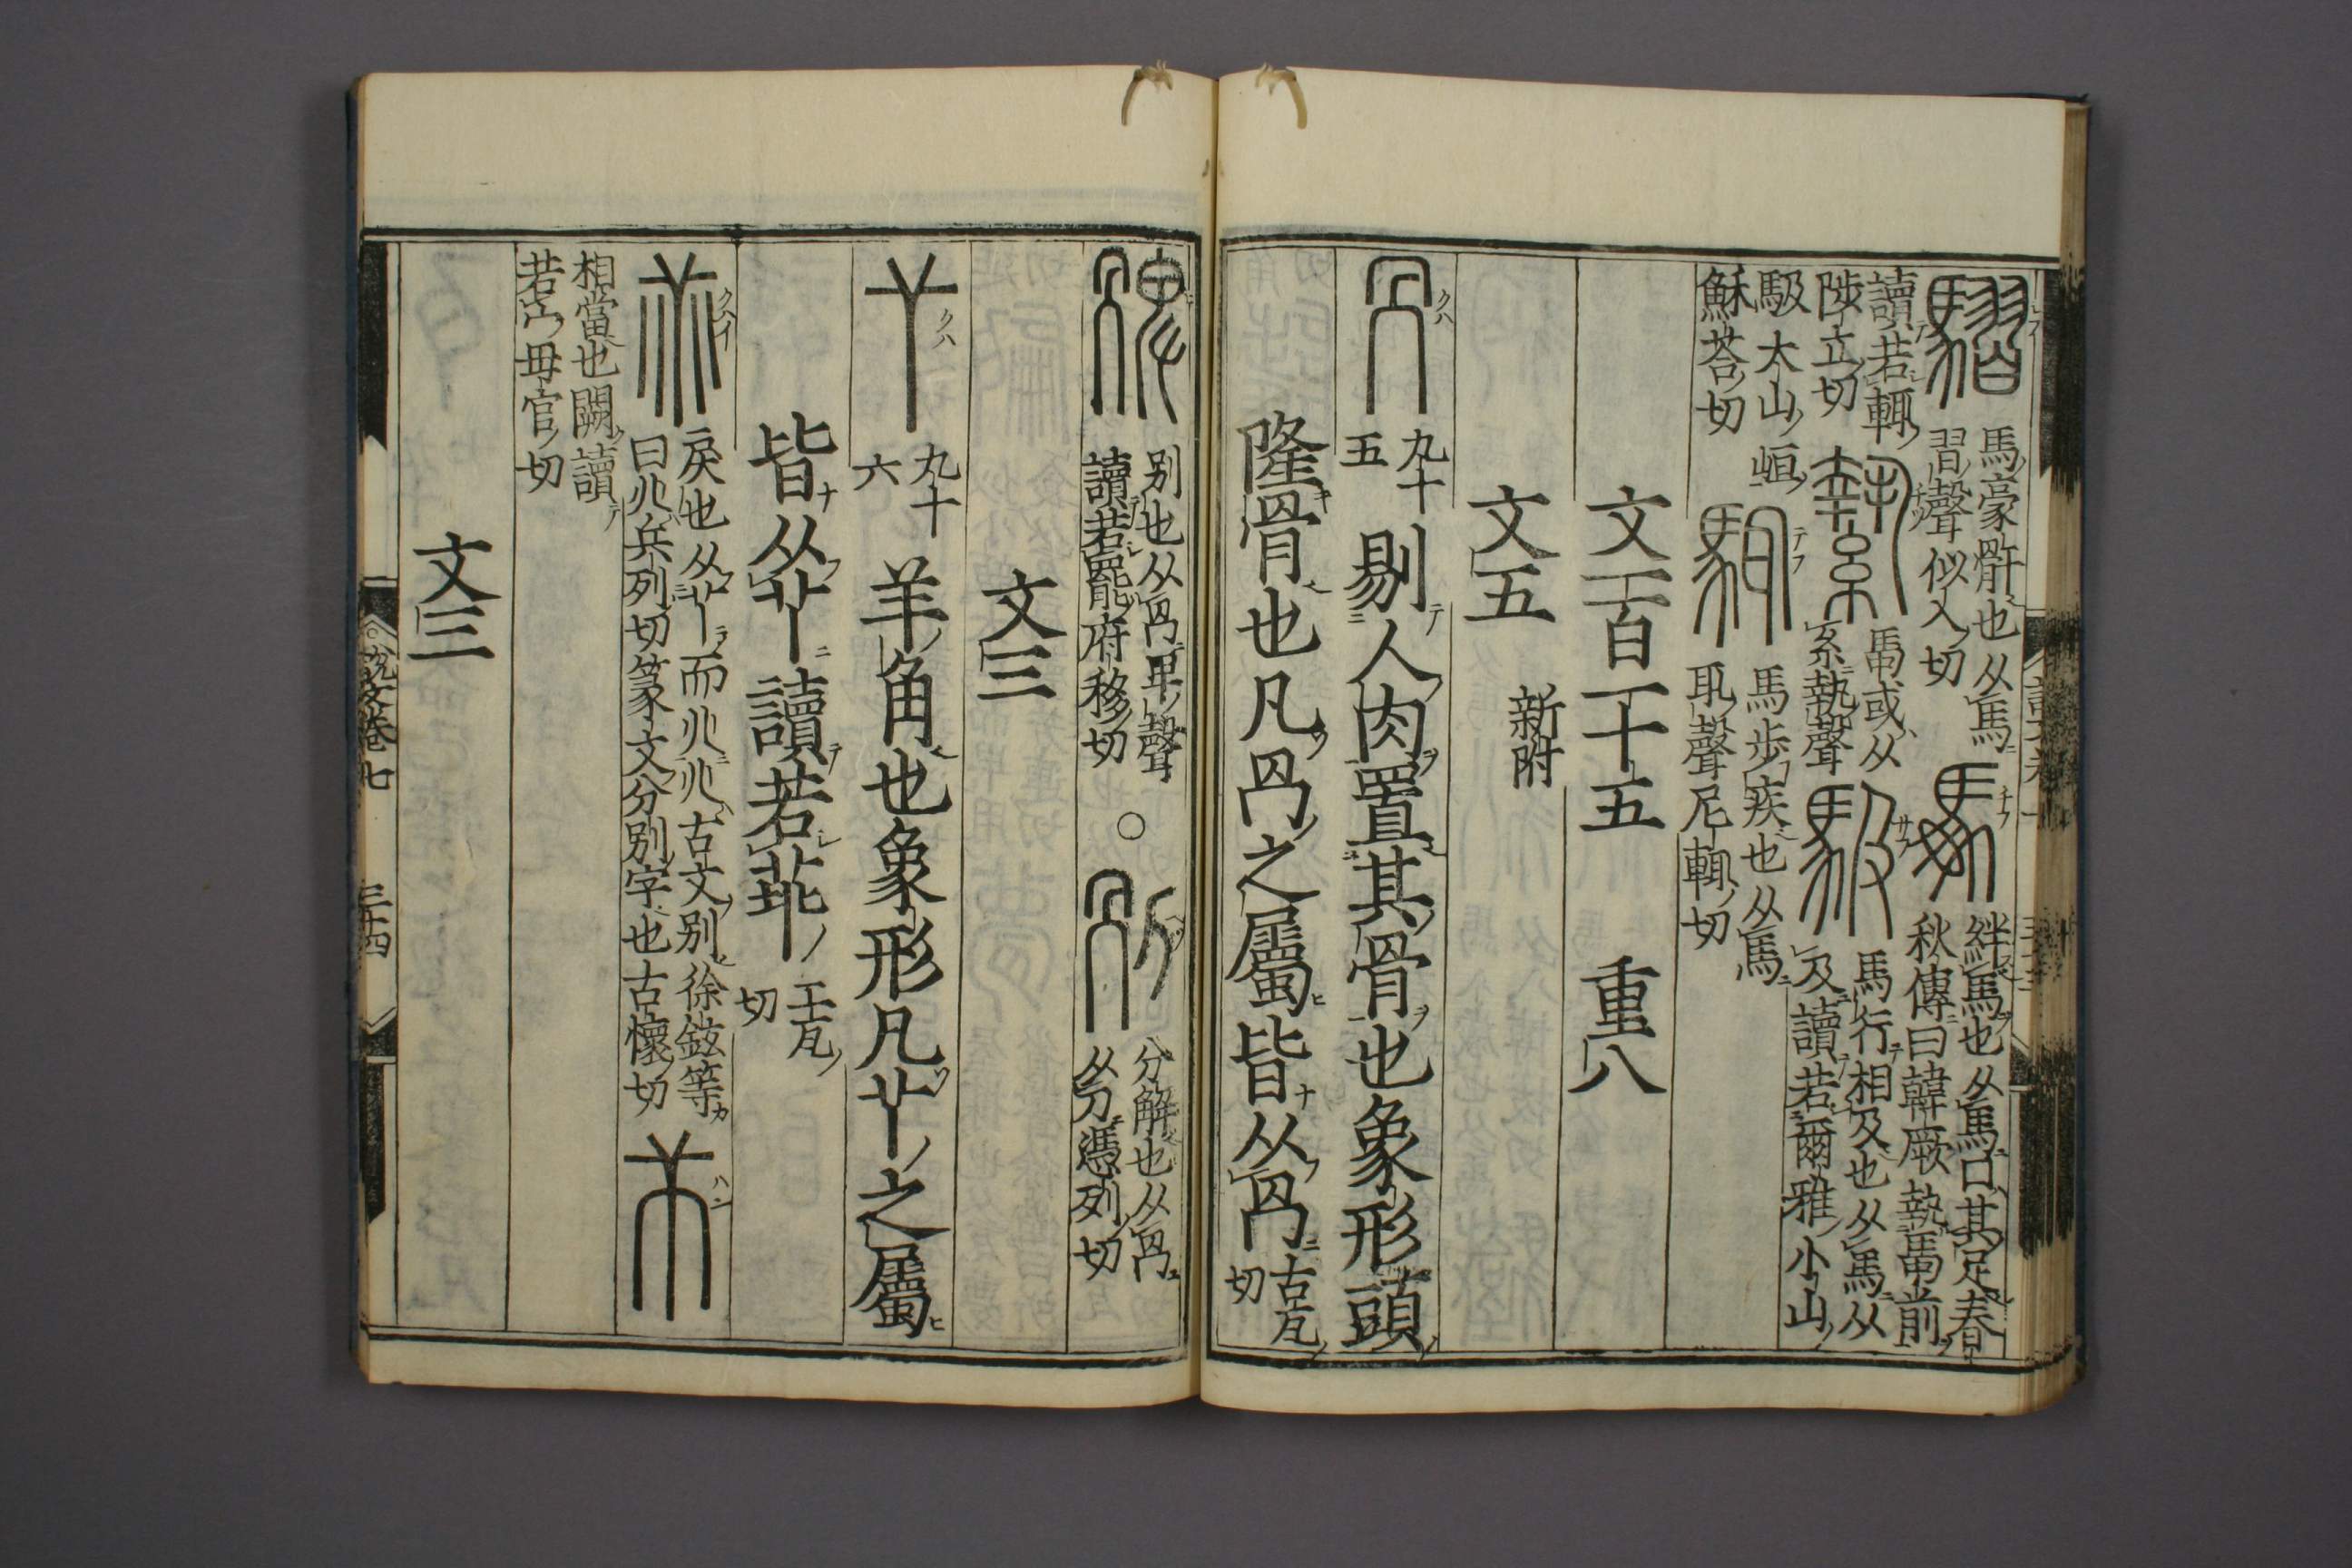 騽
馬豪骭也从馬
習聲似入切
馽
絆馬也从馬口其足春
秋傳曰韓厥執馽前
讀若輒
陟立切
縶
馽或从
糸執聲
馺
馬行相及也从馬从
及讀若爾雅小山
馺大山峘
穌荅切
馬步疾也从馬
耴聲尼輒切
文一百一十五 重八
文五 新附
冎
九十
五
剔人肉置其骨也象形頭
隆骨也凡冎之屬皆从冎
古瓦
切
別也从冎卑聲
讀若罷府移切
○
分解也从冎
从刀憑列切
文三
𠁥
九十
六
羊角也象形凡𠁥之屬
皆从𠁥讀若菲
工瓦
切
戾也从𠁥而兆兆古文別徐鉉等
曰兆兵列切篆文分別字也古懷切
相當也闕讀
若宀毋官切
文三
說文卷七
三十四